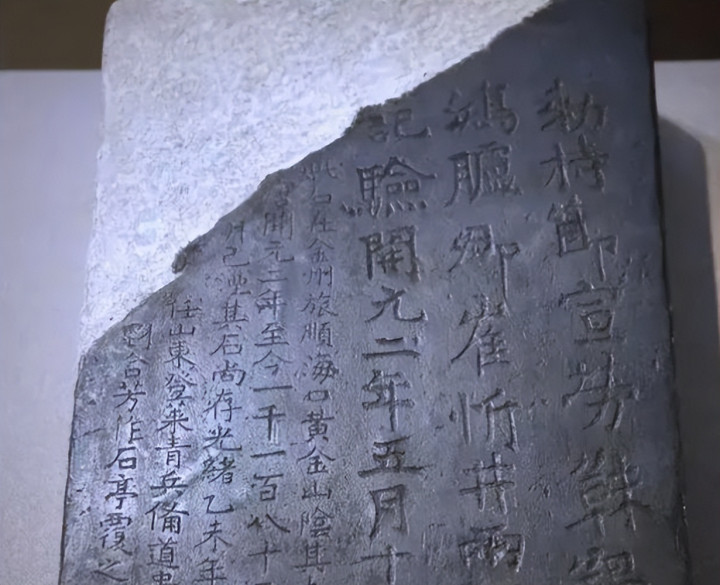 勅持節宣勞靺
鴻臚卿崔忻井兩
記驗開元二年五月十
此石在金州旅順海口黃金山陰其
開元二年至今一千一百八十
其石尚存光緒乙未年
任山東登萊青兵備道
劉含芳作石亭覆之